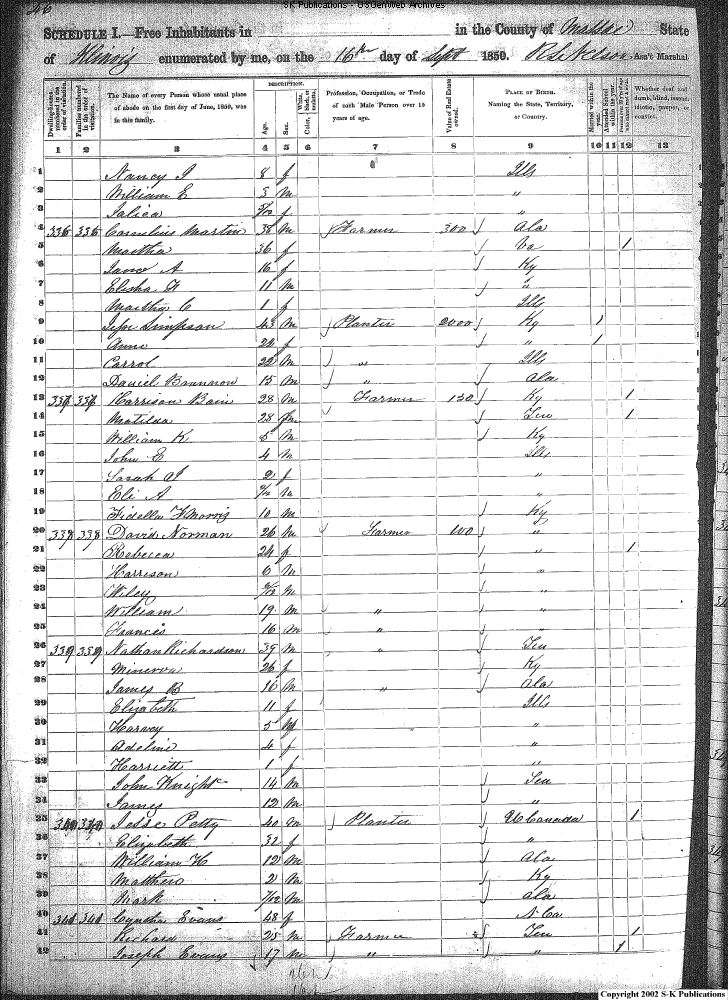 SK Publications - USGenWeb Archives
SCHEDULE I.—Free Inhabitants in in the County of Massac State
of Illinois enumerated by me, on the 16th day of Sept 1850. Ass't Marshal
DESCRIPTION.
Dwelling-houses numbered in the order of visitation.
Families numbered in the order of visitation.
The Name of every Person whose usual place of abode on the first day of June, 1850, was in this family.
Age.
Sex.
Color, White, black, or mulatto.
Profession, Occupation, or Trade of each Male Person over 15 years of age.
Value of Real Estate owned.
PLACE OF BIRTH. Naming the State, Territory, or Country.
Married within the year.
Attended School within the year.
Whether deaf and dumb, blind, insane, idiotic, pauper, or convict.
1 2 3 4 5 6 7 8 9 10 11 12 13
1 Nancy J 8 f Ills
2 William E 3 m "
3 f "
4 336 336 Cornelius Martin 38 m Farmer 300 Ala
5 Martha 36 f Va 1
6 Jane A 16 f Ky
7 Elisha 11 m "
8 Martha C 1 f Ills
9 Simpson 43 m Planter 2000 Ky 1
10 Anne 22 f " 1
11 Carrol 22 m " Ills
12 Daniel Brannon 15 m " Ala
13 337 337 Harrison Bain 28 m Farmer 150 Ky 1
14 Matilda 28 f Ten 1
15 William K 5 m Ky
16 John E 4 m Ills
17 Sarah J 2 f "
18 Eli A m "
19 Fidella F Morris 10 m Ky
20 338 338 David Norman 26 m Farmer 100 "
21 Rebecca 24 f " 1
22 Harrison 6 m "
23 Wiley m "
24 William 19 m " "
25 Francis 16 m " "
26 339 339 Nathan Richardson 39 m " Ten
27 Minerva 26 f Ky
28 James B 16 m " Ala
29 Elizabeth 11 f Ills
30 Harvey 5 m "
31 Adeline 4 f "
32 Harriett 1 f "
33 John Knight 14 m Ten
34 James 12 m "
35 340 340 Jesse Petty 40 m Planter 1
36 Elizabeth 32 f "
37 William H 12 m Ala
38 Matthew 2 m Ky
39 Mark 7/12 m Ala
40 341 341 Cyntha Evans 48 f N Ca
41 Richard 25 m Farmer Ten 1
42 Joseph Evans 17 m " " 1
Copyright 2002 S-K Publications